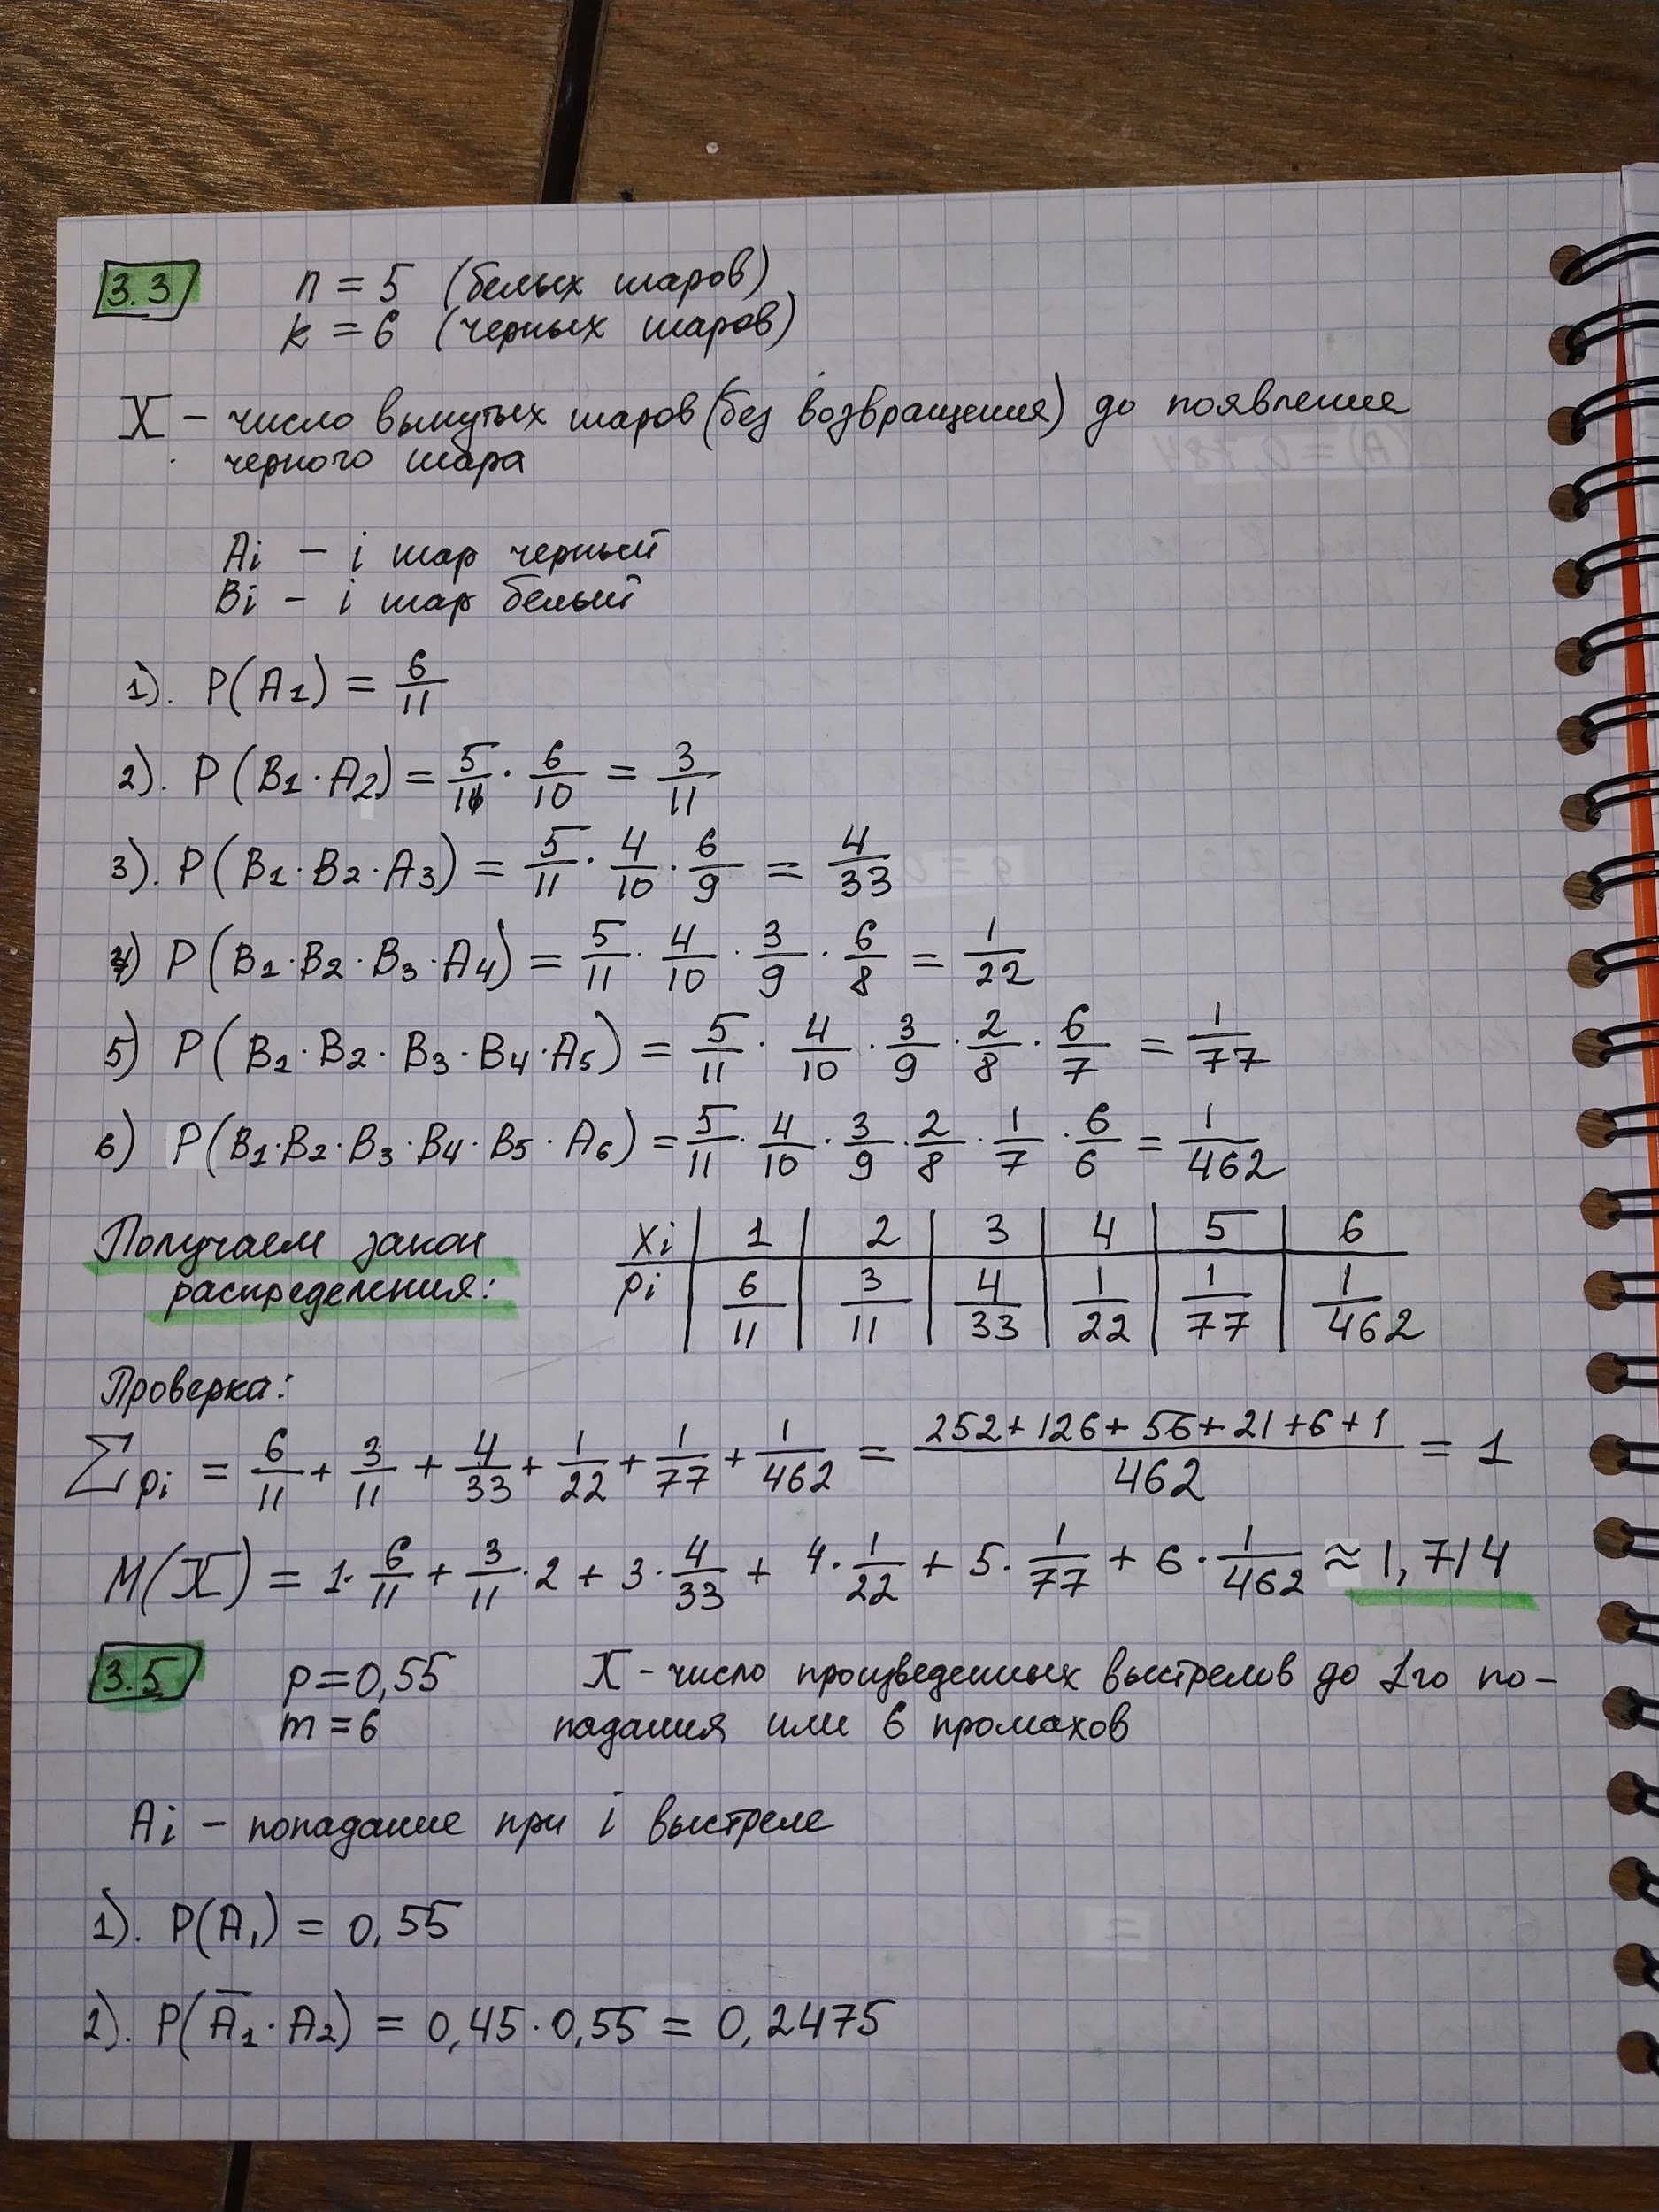 3.3 n = 5 (белых шаров)
k = 6 (черных шаров)
X – число вынутых шаров (без возвращения) до появления
черного шара
Ai – i шар черный
Bi – i шар белый
1). P(A1) = 6/11
2). P(B1·A2) = 5/11 · 6/10 = 3/11
3). P(B1·B2·A3) = 5/11 · 4/10 · 6/9 = 4/33
4) P(B1·B2·B3·A4) = 5/11 · 4/10 · 3/9 · 6/8 = 1/22
5) P(B1·B2·B3·B4·A5) = 5/11 · 4/10 · 3/9 · 2/8 · 6/7 = 1/77
6) P(B1·B2·B3·B4·B5·A6) = 5/11 · 4/10 · 3/9 · 2/8 · 1/7 · 6/6 = 1/462
Получаем закон
распределения:
xi | 1 | 2 | 3 | 4 | 5 | 6
pi | 6/11 | 3/11 | 4/33 | 1/22 | 1/77 | 1/462
Проверка:
∑pi = 6/11 + 3/11 + 4/33 + 1/22 + 1/77 + 1/462 = (252+126+56+21+6+1)/462 = 1
M(X) = 1·6/11 + 3/11·2 + 3·4/33 + 4·1/22 + 5·1/77 + 6·1/462 ≈ 1,714
3.5 p = 0,55 X - число произведенных выстрелов до 1го по-
m = 6 падания или 6 промахов
Ai – попадание при i выстреле
1). P(A1) = 0,55
2). P(A̅1·A2) = 0,45·0,55 = 0,2475